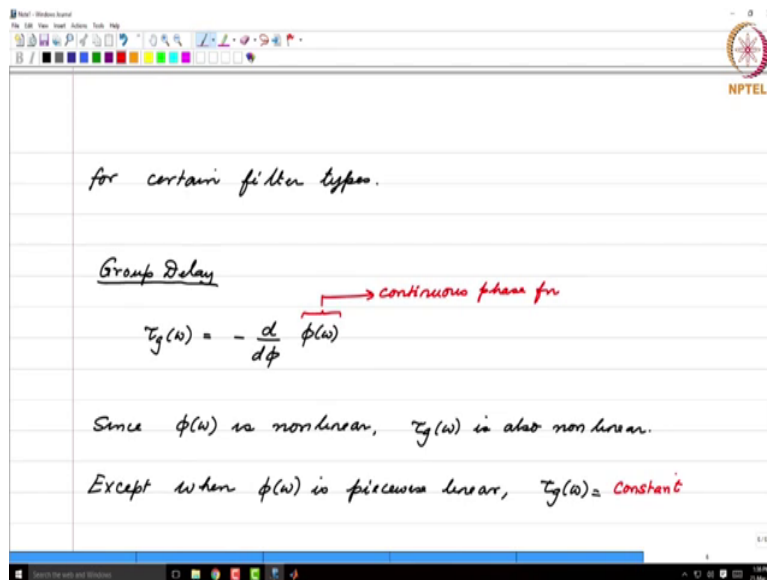 Note1 - Windows Journal
File Edit View Insert Actions Tools Help
B I
NPTEL
for certain filter types.
Group Delay
continuous phase fn
τg(ω) = - d/dϕ ϕ(ω)
Since ϕ(ω) is nonlinear, τg(ω) is also non linear.
Except when ϕ(ω) is piecewise linear, τg(ω) = constant
Search the web and Windows